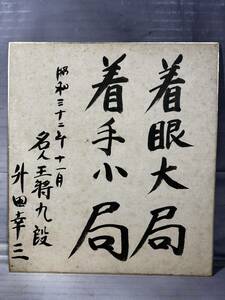 着眼大局
着手小局
昭和三十二年十一月
名人王将九段
升田幸三